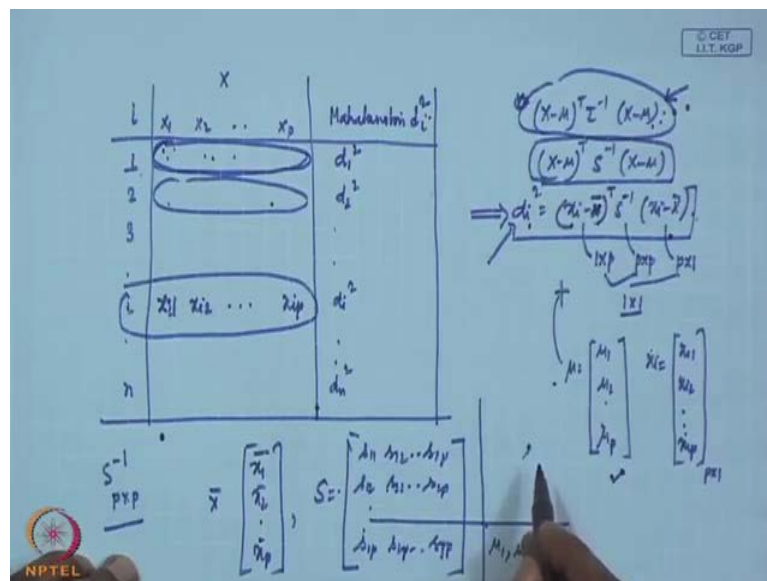 © CET
I.I.T. KGP
X
i x₁ x₂ .. xₚ Mahalanobis dᵢ²
1 : . . . d₁²
2 . . d₂²
3 .
. .
i xᵢ₁ xᵢ₂ ... xᵢₚ dᵢ²
. :
n dₙ²
(x-μ)ᵀ Σ⁻¹ (x-μ)
(x-μ)ᵀ S⁻¹ (x-μ)
⇒ dᵢ² = (xᵢ-x̄)ᵀ S⁻¹ (xᵢ-x̄)
1×p p×p p×1
1×1
μ = [μ₁ μ₂ : μₚ] xᵢ = [xᵢ₁ xᵢ₂ : xᵢₚ] p×1
S⁻¹
p×p
x̄ [x̄₁ x̄₂ : x̄ₚ] ,
S = [s₁₁ s₁₂ .. s₁ₚ
s₁₂ .. s₂ₚ
:
s₁ₚ s₂ₚ .. sₚₚ]
μ₁,
NPTEL